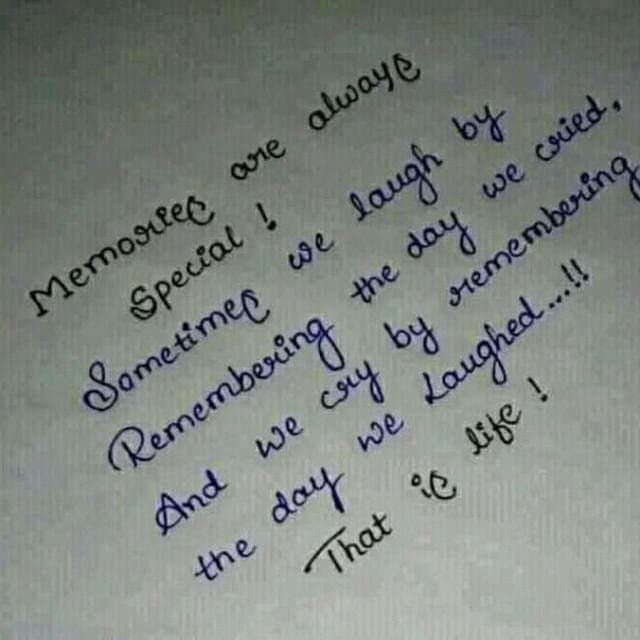 Memories are always
Special !
Sometimes we laugh by
Remembering the day we cried,
And we cry by remembering
the day we Laughed...!!
That is life !